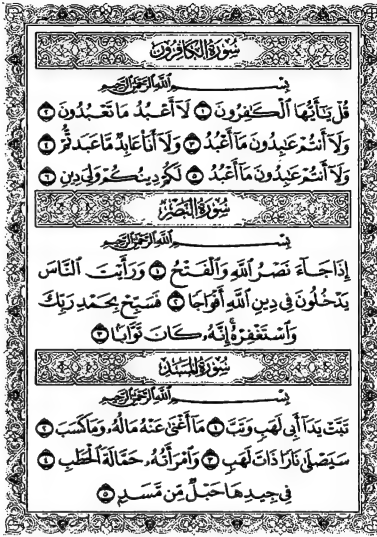 سُورَةُ الْكَافِرُونَ
بِسْمِ اللَّهِ الرَّحْمَٰنِ الرَّحِيمِ
قُلْ يَٰٓأَيُّهَا ٱلْكَٰفِرُونَ ١ لَآ أَعْبُدُ مَا تَعْبُدُونَ ٢
وَلَآ أَنتُمْ عَٰبِدُونَ مَآ أَعْبُدُ ٣ وَلَآ أَنَا۠ عَابِدٌ مَّا عَبَدتُّمْ ٤
وَلَآ أَنتُمْ عَٰبِدُونَ مَآ أَعْبُدُ ٥ لَكُمْ دِينُكُمْ وَلِىَ دِينِ ٦
سُورَةُ النَّصْرِ
بِسْمِ اللَّهِ الرَّحْمَٰنِ الرَّحِيمِ
إِذَا جَآءَ نَصْرُ ٱللَّهِ وَٱلْفَتْحُ ١ وَرَأَيْتَ ٱلنَّاسَ
يَدْخُلُونَ فِى دِينِ ٱللَّهِ أَفْوَاجًا ٢ فَسَبِّحْ بِحَمْدِ رَبِّكَ
وَٱسْتَغْفِرْهُ ۚ إِنَّهُۥ كَانَ تَوَّابًۢا ٣
سُورَةُ الْمَسَدِ
بِسْمِ اللَّهِ الرَّحْمَٰنِ الرَّحِيمِ
تَبَّتْ يَدَآ أَبِى لَهَبٍ وَتَبَّ ١ مَآ أَغْنَىٰ عَنْهُ مَالُهُۥ وَمَا كَسَبَ ٢
سَيَصْلَىٰ نَارًا ذَاتَ لَهَبٍ ٣ وَٱمْرَأَتُهُۥ حَمَّالَةَ ٱلْحَطَبِ ٤
فِى جِيدِهَا حَبْلٌ مِّن مَّسَدٍۭ ٥